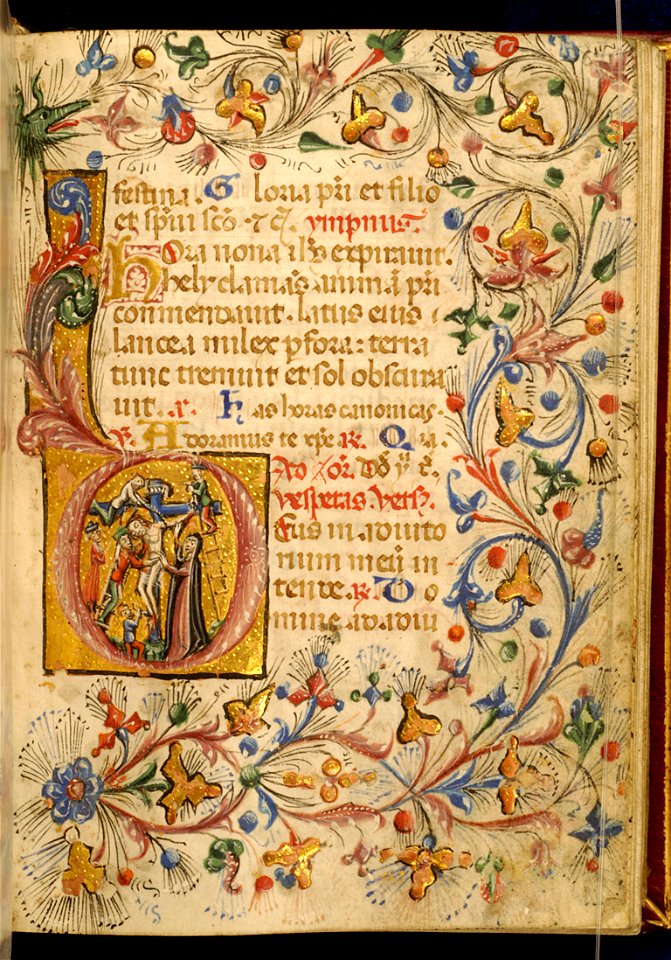 festina. Gloria pri et filio
et spiu sco. 7 c. ympnus.
Hora nona ihs expirauit.
hely clamas animā pri
commendauit. latus eius
lancea milex pfora: terra
tunc tremuit et sol obscura
uit. r. Has horas canonicas.
V. Adoramus te xpe R. Quia.
Ad
vesperas. Vers.
Eus in adiuto
rium meū in
tende. R. Do
mine ad adiu